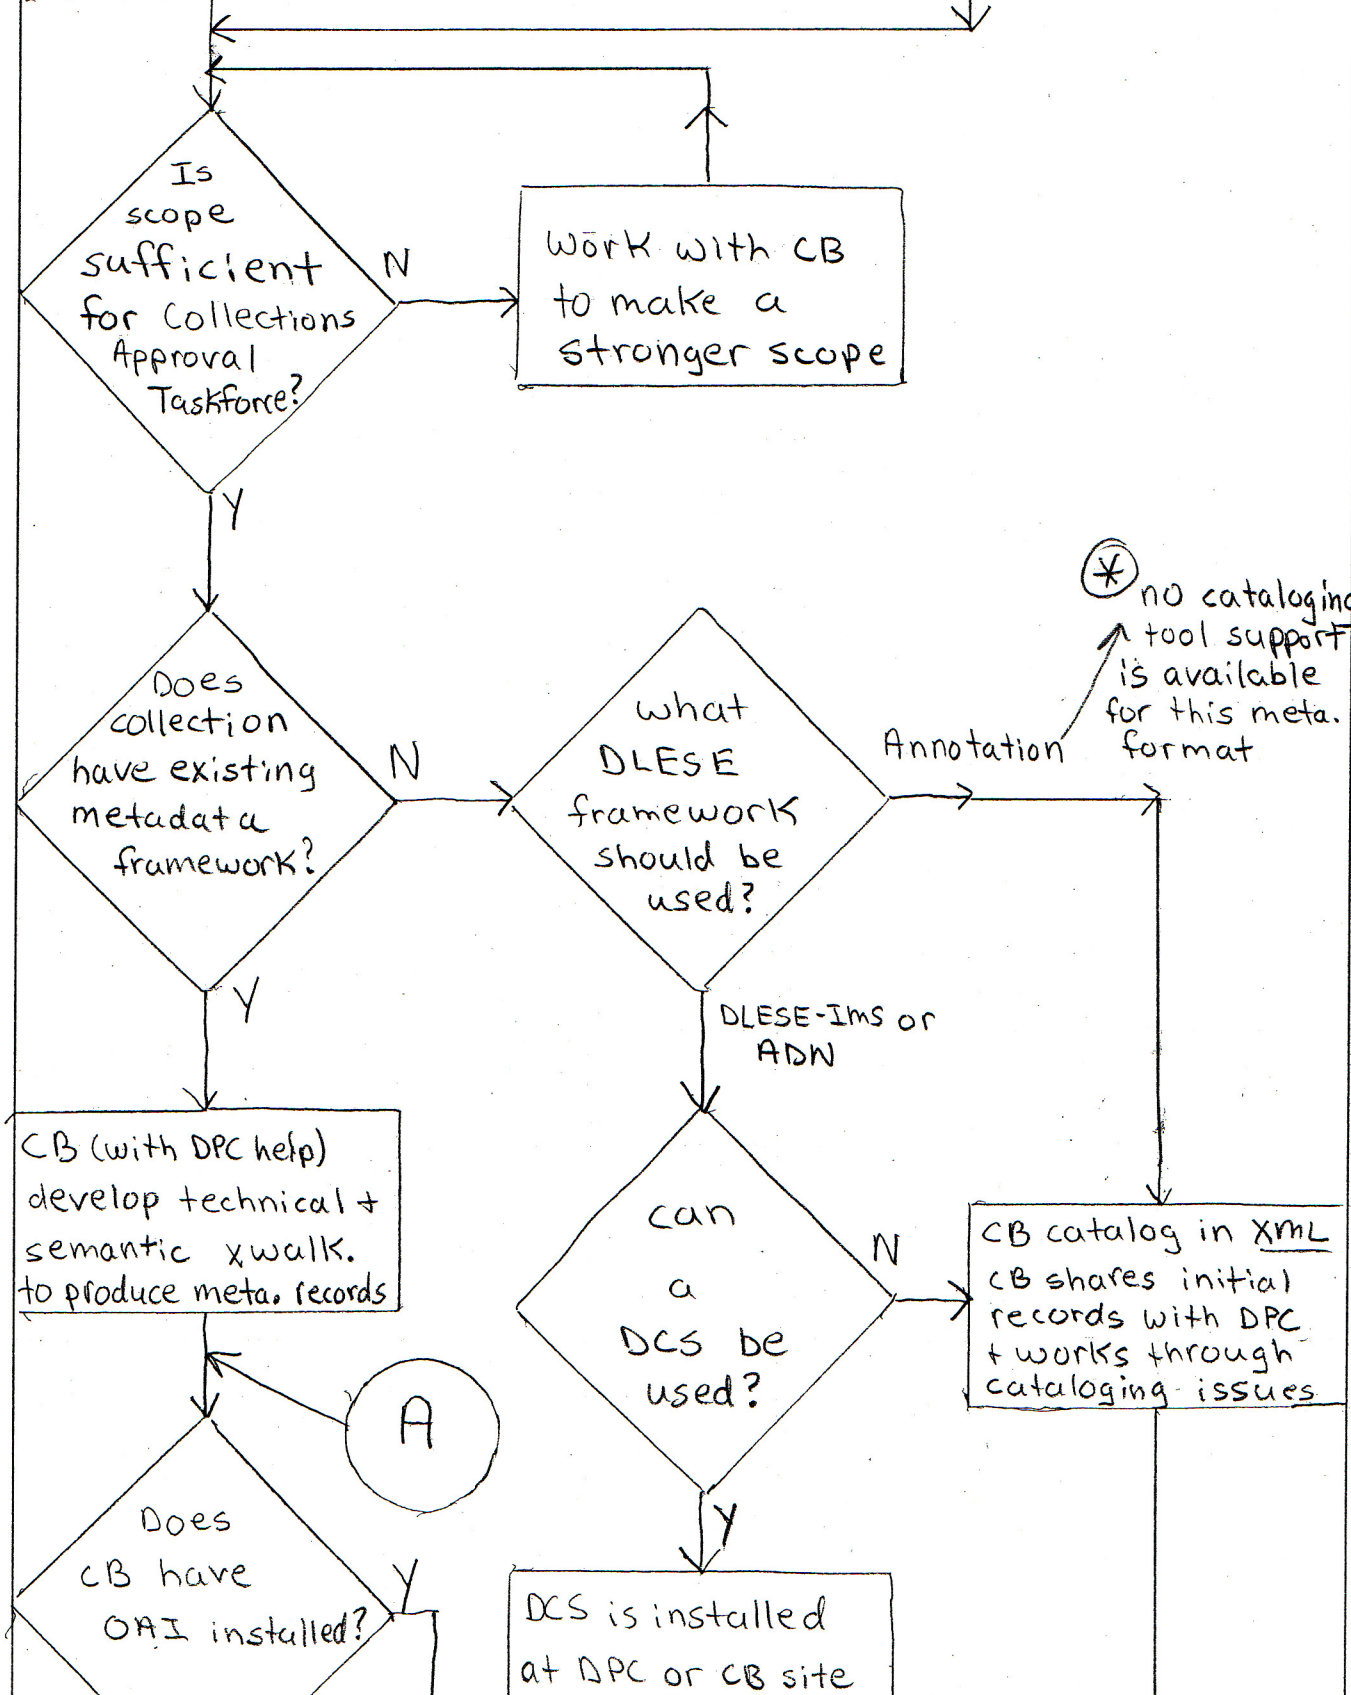 Is
scope
sufficient
for Collections
Approval
Taskforce?
N
Work with CB
to make a
stronger scope
Y
Does
collection
have existing
metadata
framework?
N
What
DLESE
framework
should be
used?
Annotation
*
no cataloging
tool support
is available
for this meta.
format
Y
DLESE-IMS or
ADN
CB (with DPC help)
develop technical +
semantic xwalk.
to produce meta. records
can
a
DCS be
used?
N
CB catalog in XML
CB shares initial
records with DPC
+ works through
cataloging issues
A
Does
CB have
OAI installed?
Y
Y
DCS is installed
at DPC or CB site